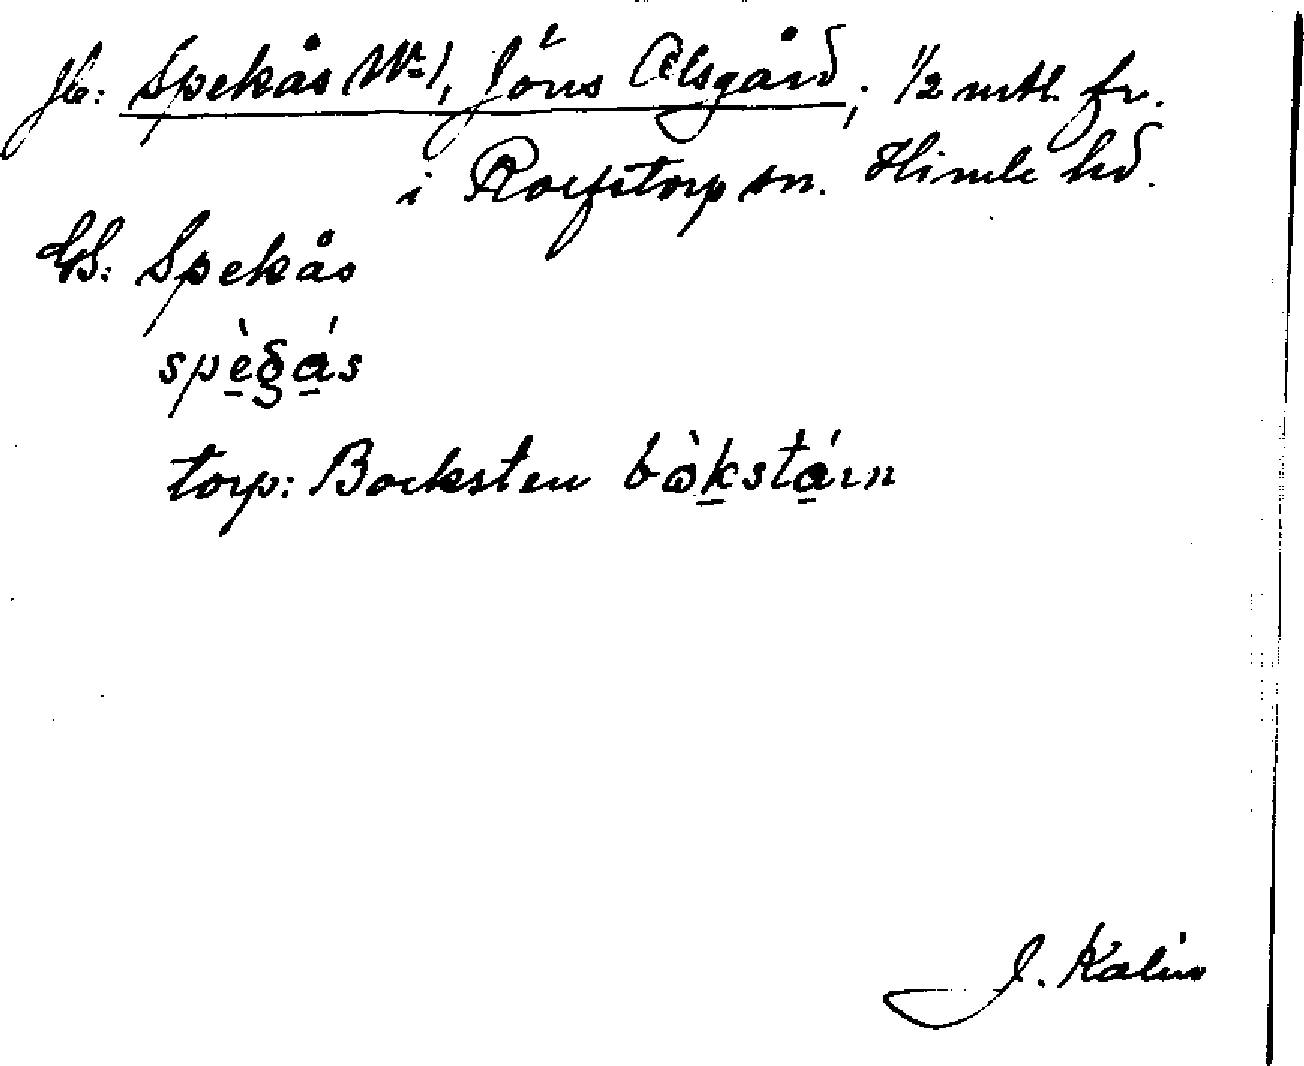 Jb: Spekås Nº 1, Jöns Olsgård; 1/2 mtl fr.
i Rolfstorp sn. Himle hd.
GS: Spekås
spègás
torp: Bocksten bòkstáın
J. Kalén